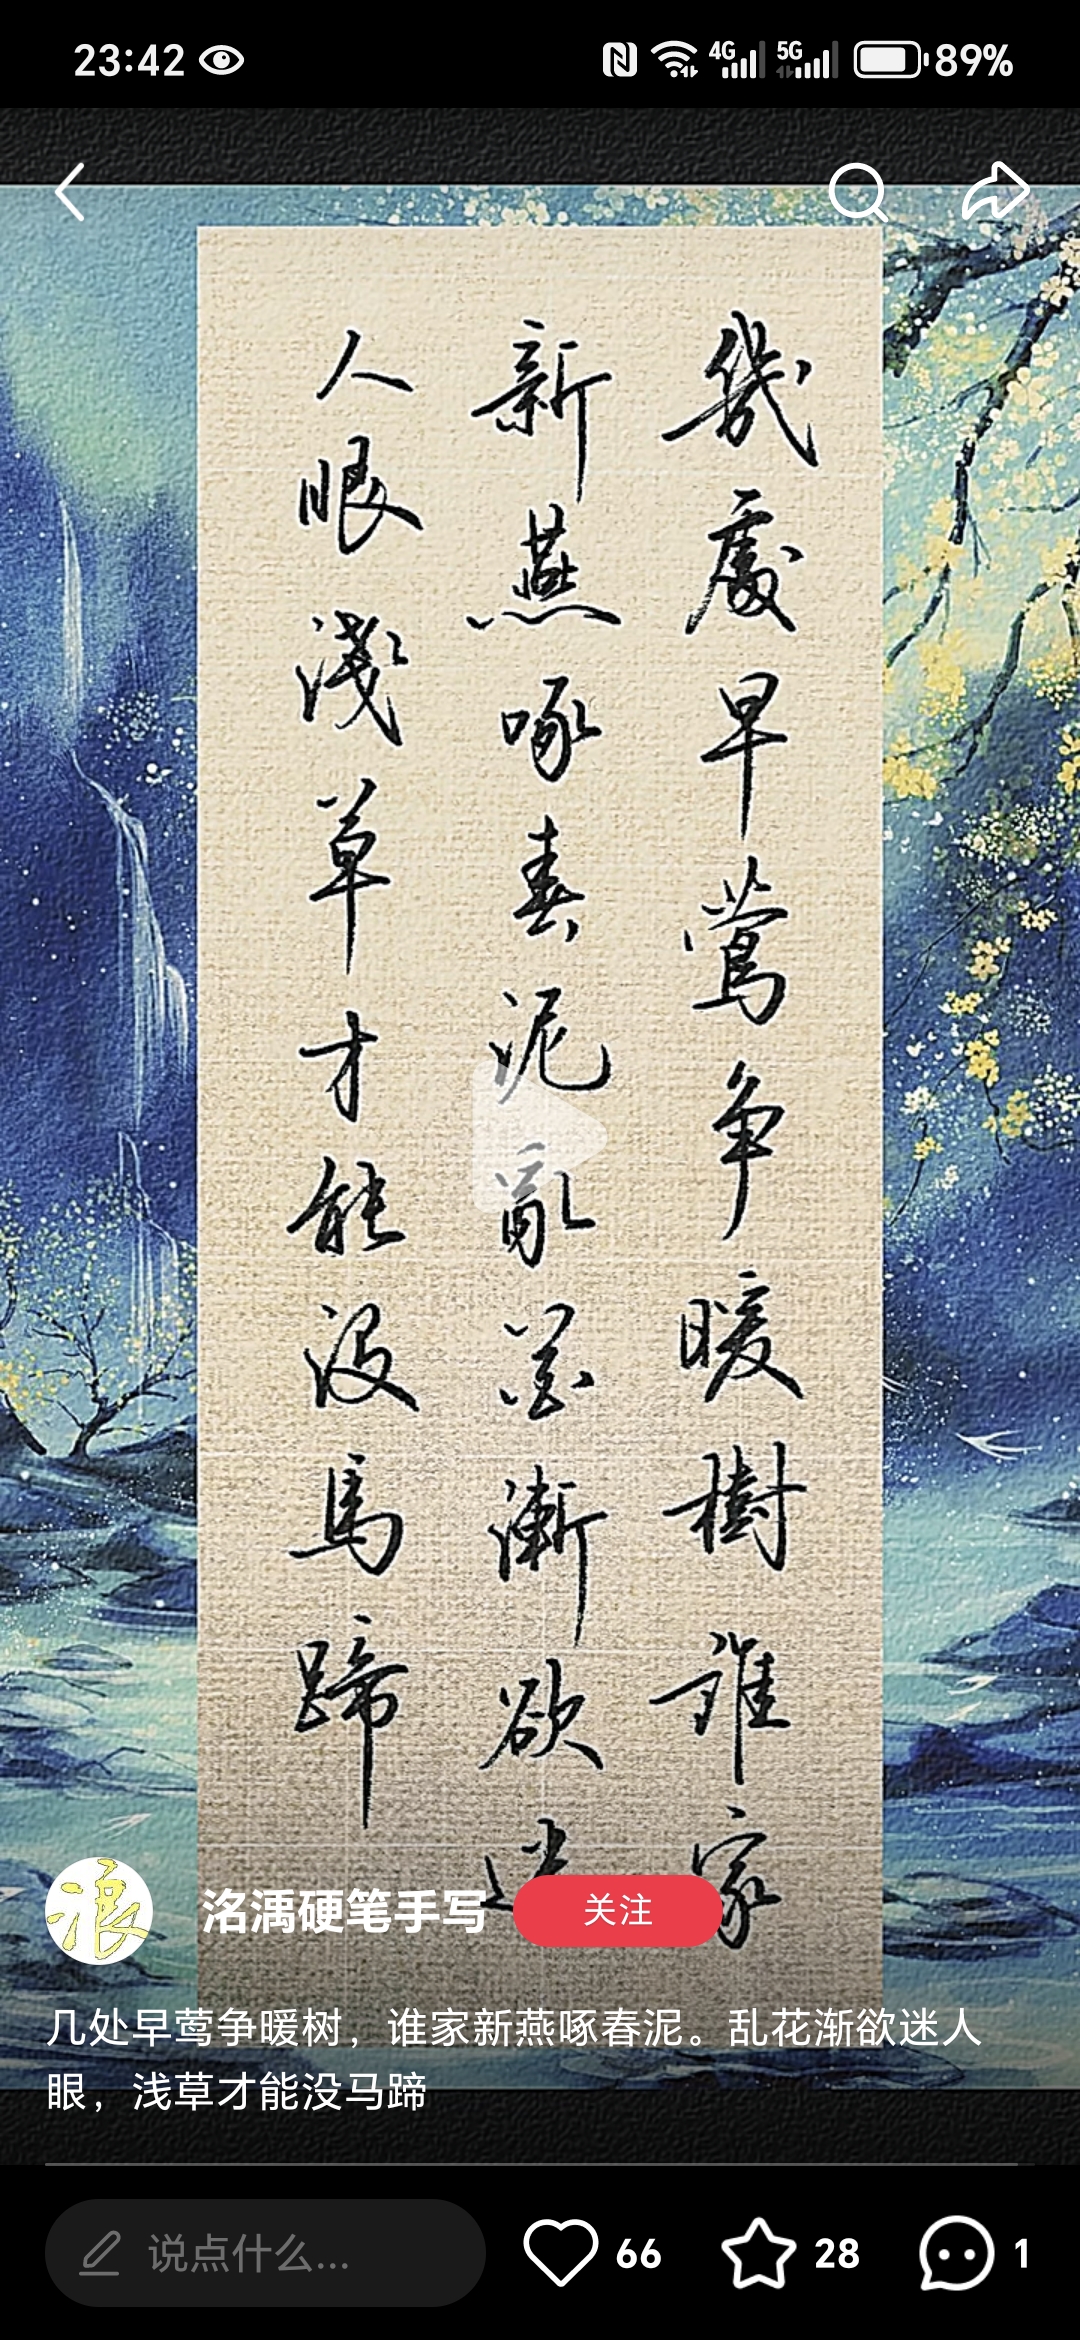 23:42
4G 5G 89%
幾處早鶯争暖樹誰家
新燕啄春泥亂花漸欲迷
人眼淺草才能没馬蹄
浪
洺渪硬笔手写 关注
几处早莺争暖树，谁家新燕啄春泥。乱花渐欲迷人
眼，浅草才能没马蹄
说点什么... 66 28 1